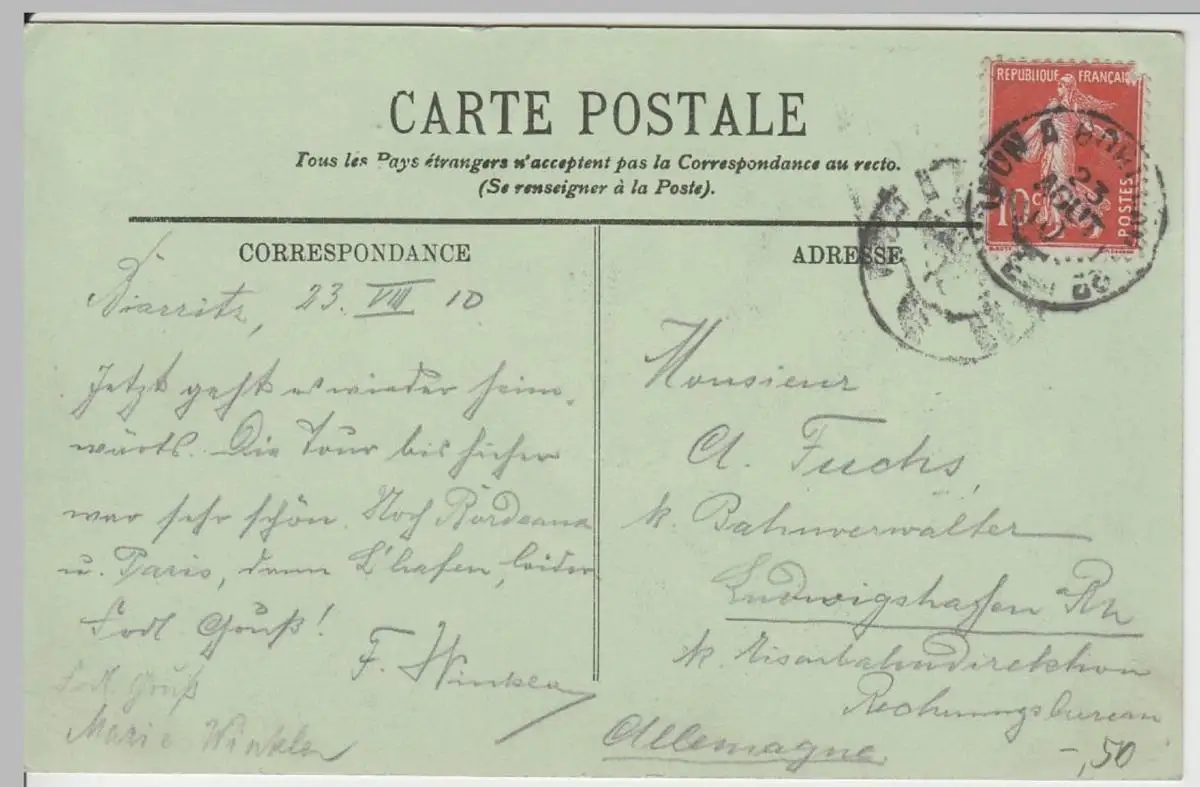 CARTE POSTALE
Tous les Pays étrangers n'acceptent pas la Correspondance au recto.
(Se renseigner à la Poste).
REPUBLIQUE FRANÇAISE
10 c
POSTES
23
AOUT
10
CORRESPONDANCE
Biarritz, 23. VIII 10
Jetzt geht es wieder heim-
wärts. Die Tour bis hieher
war sehr schön. Noch Bordeaux
u. Paris, dann L'hafen, leider.
Herzl Gruß!
F. Winkler
Herzl. Gruß
Marie Winkler
ADRESSE
Monsieur
A. Fuchs,
k. Bahnverwalter
Ludwigshafen Rh
k. Eisenbahndirektion
Rechnungsbureau
Allemagne.
-,50